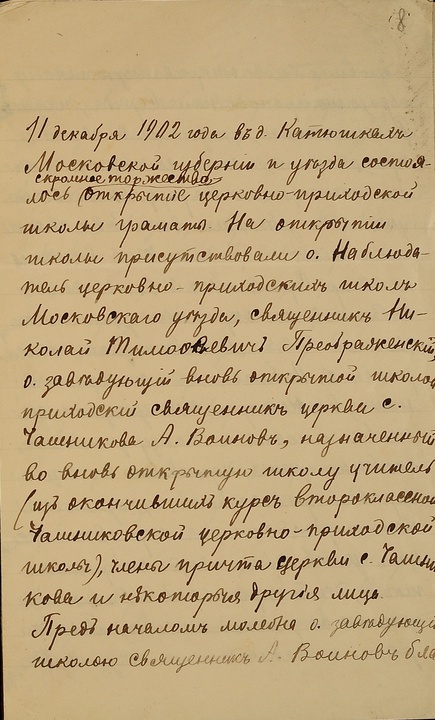 8
11 декабря 1902 года въ д. Катюшкахъ
Московской губернии и уѣзда состоя-
скромное торжество
лось открытіе церковно-приходской
школы грамоты. На открытіи
школы присутствовали о. Наблюда-
тель церковно-приходскихъ школъ
Московскаго уѣзда, священникъ Ни-
колай Тимоѳѣевичъ Преображенскій
о. завѣдующій вновь открытой школой
приходскій священникъ церкви с.
Чашникова А. Воиновъ, назначенный
во вновь открытую школу учитель
(изъ окончившихъ курсъ второклассной
Чашниковской церковно-приходской
школы), члены причта церкви с. Чашни
кова и нѣкоторыя другія лица.
Предъ началомъ молебна о. завѣдующій
школою священникъ А. Воиновъ бла